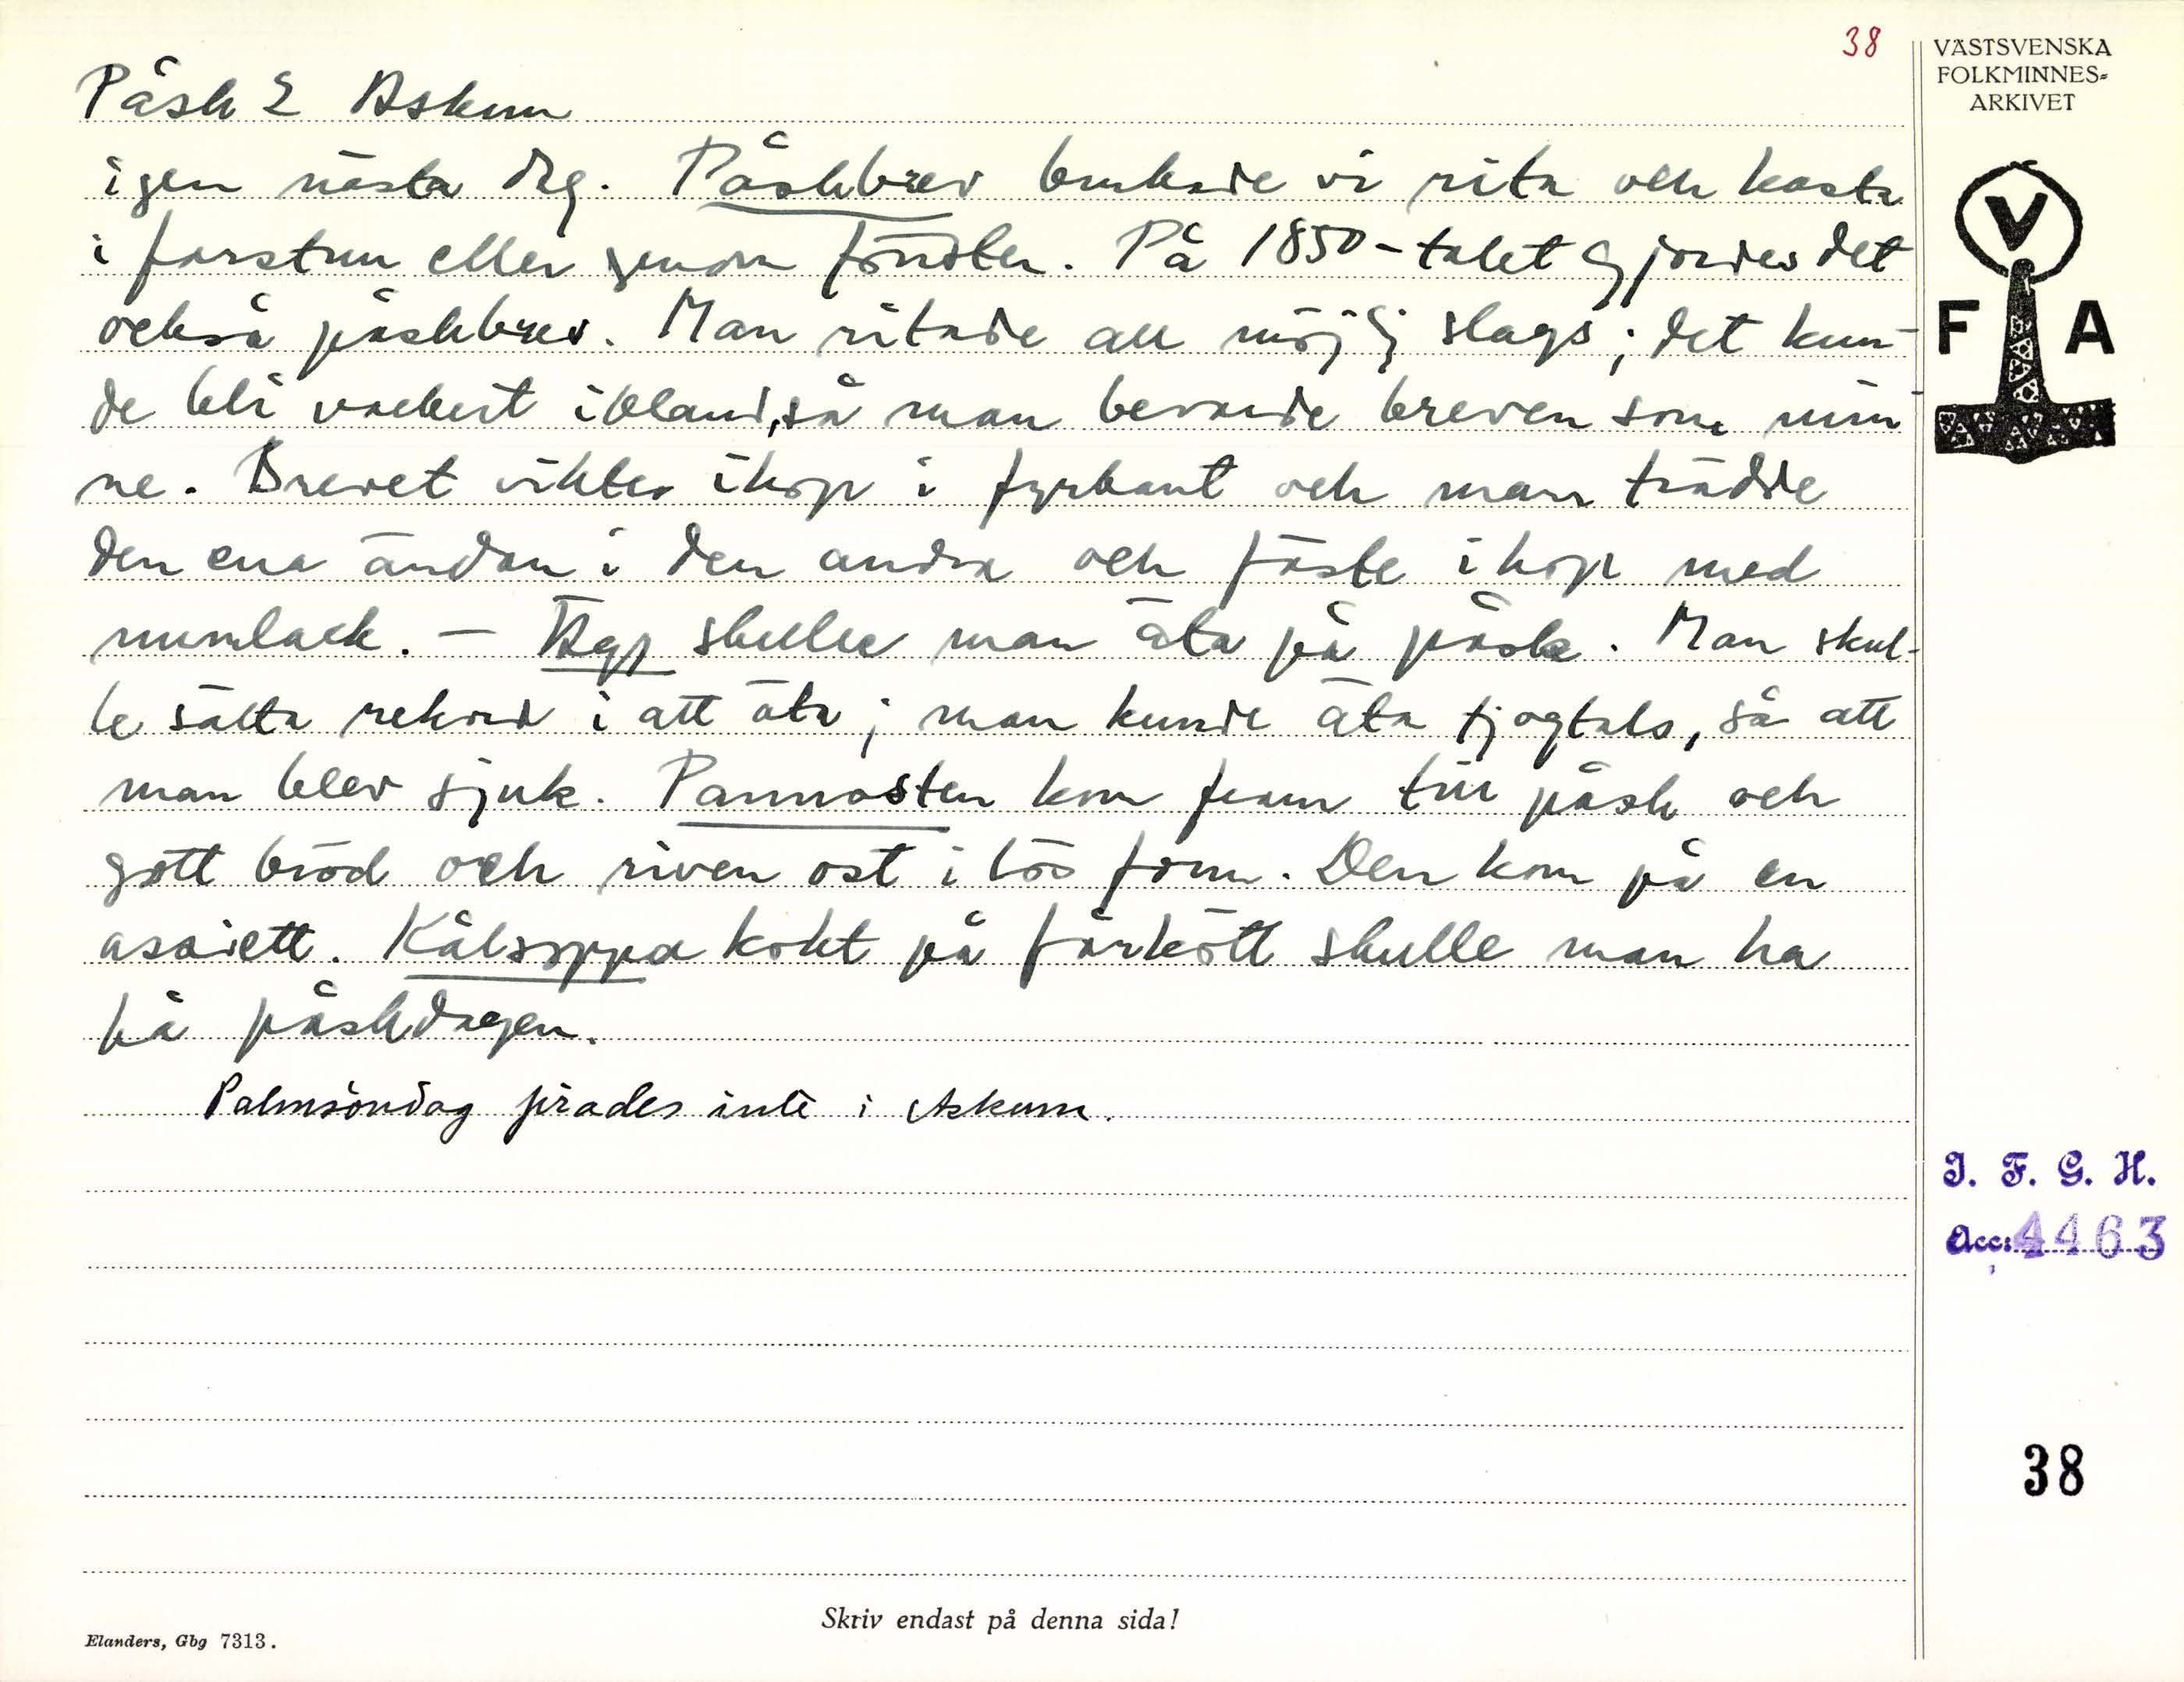 38
Påsk 2 Askum
igen nästa dag. Påskbrev brukade vi rita och kasta
i farstun eller genom fönster. På 1850-talet gjordes det
också påskbrev. Man ritade all möjlj slags; det kun-
de bli vackert ibland, så man bevarde breven som min-
ne. Brevet viktes ihop i fyrkant och man trädde
den ena ändan i den andra och fäste ihop med
munlack. – Ägg skulle man äta på påsk. Man skul-
le sätta rekord i att äta; man kunde äta tjogtals, så att
man blev sjuk. Pannosten kom fram till påsk och
gott bröd och riven ost i lös form. Den kom på en
assiett. Kålsoppa kokt på fårkött skulle man ha
på påskdagen.
Palmsöndag firades inte i Askum.
VÄSTSVENSKA
FOLKMINNES-
ARKIVET
V
F A
I. F. G. H.
Acc: 4463
38
Skriv endast på denna sida!
Elanders, Gbg 7313.